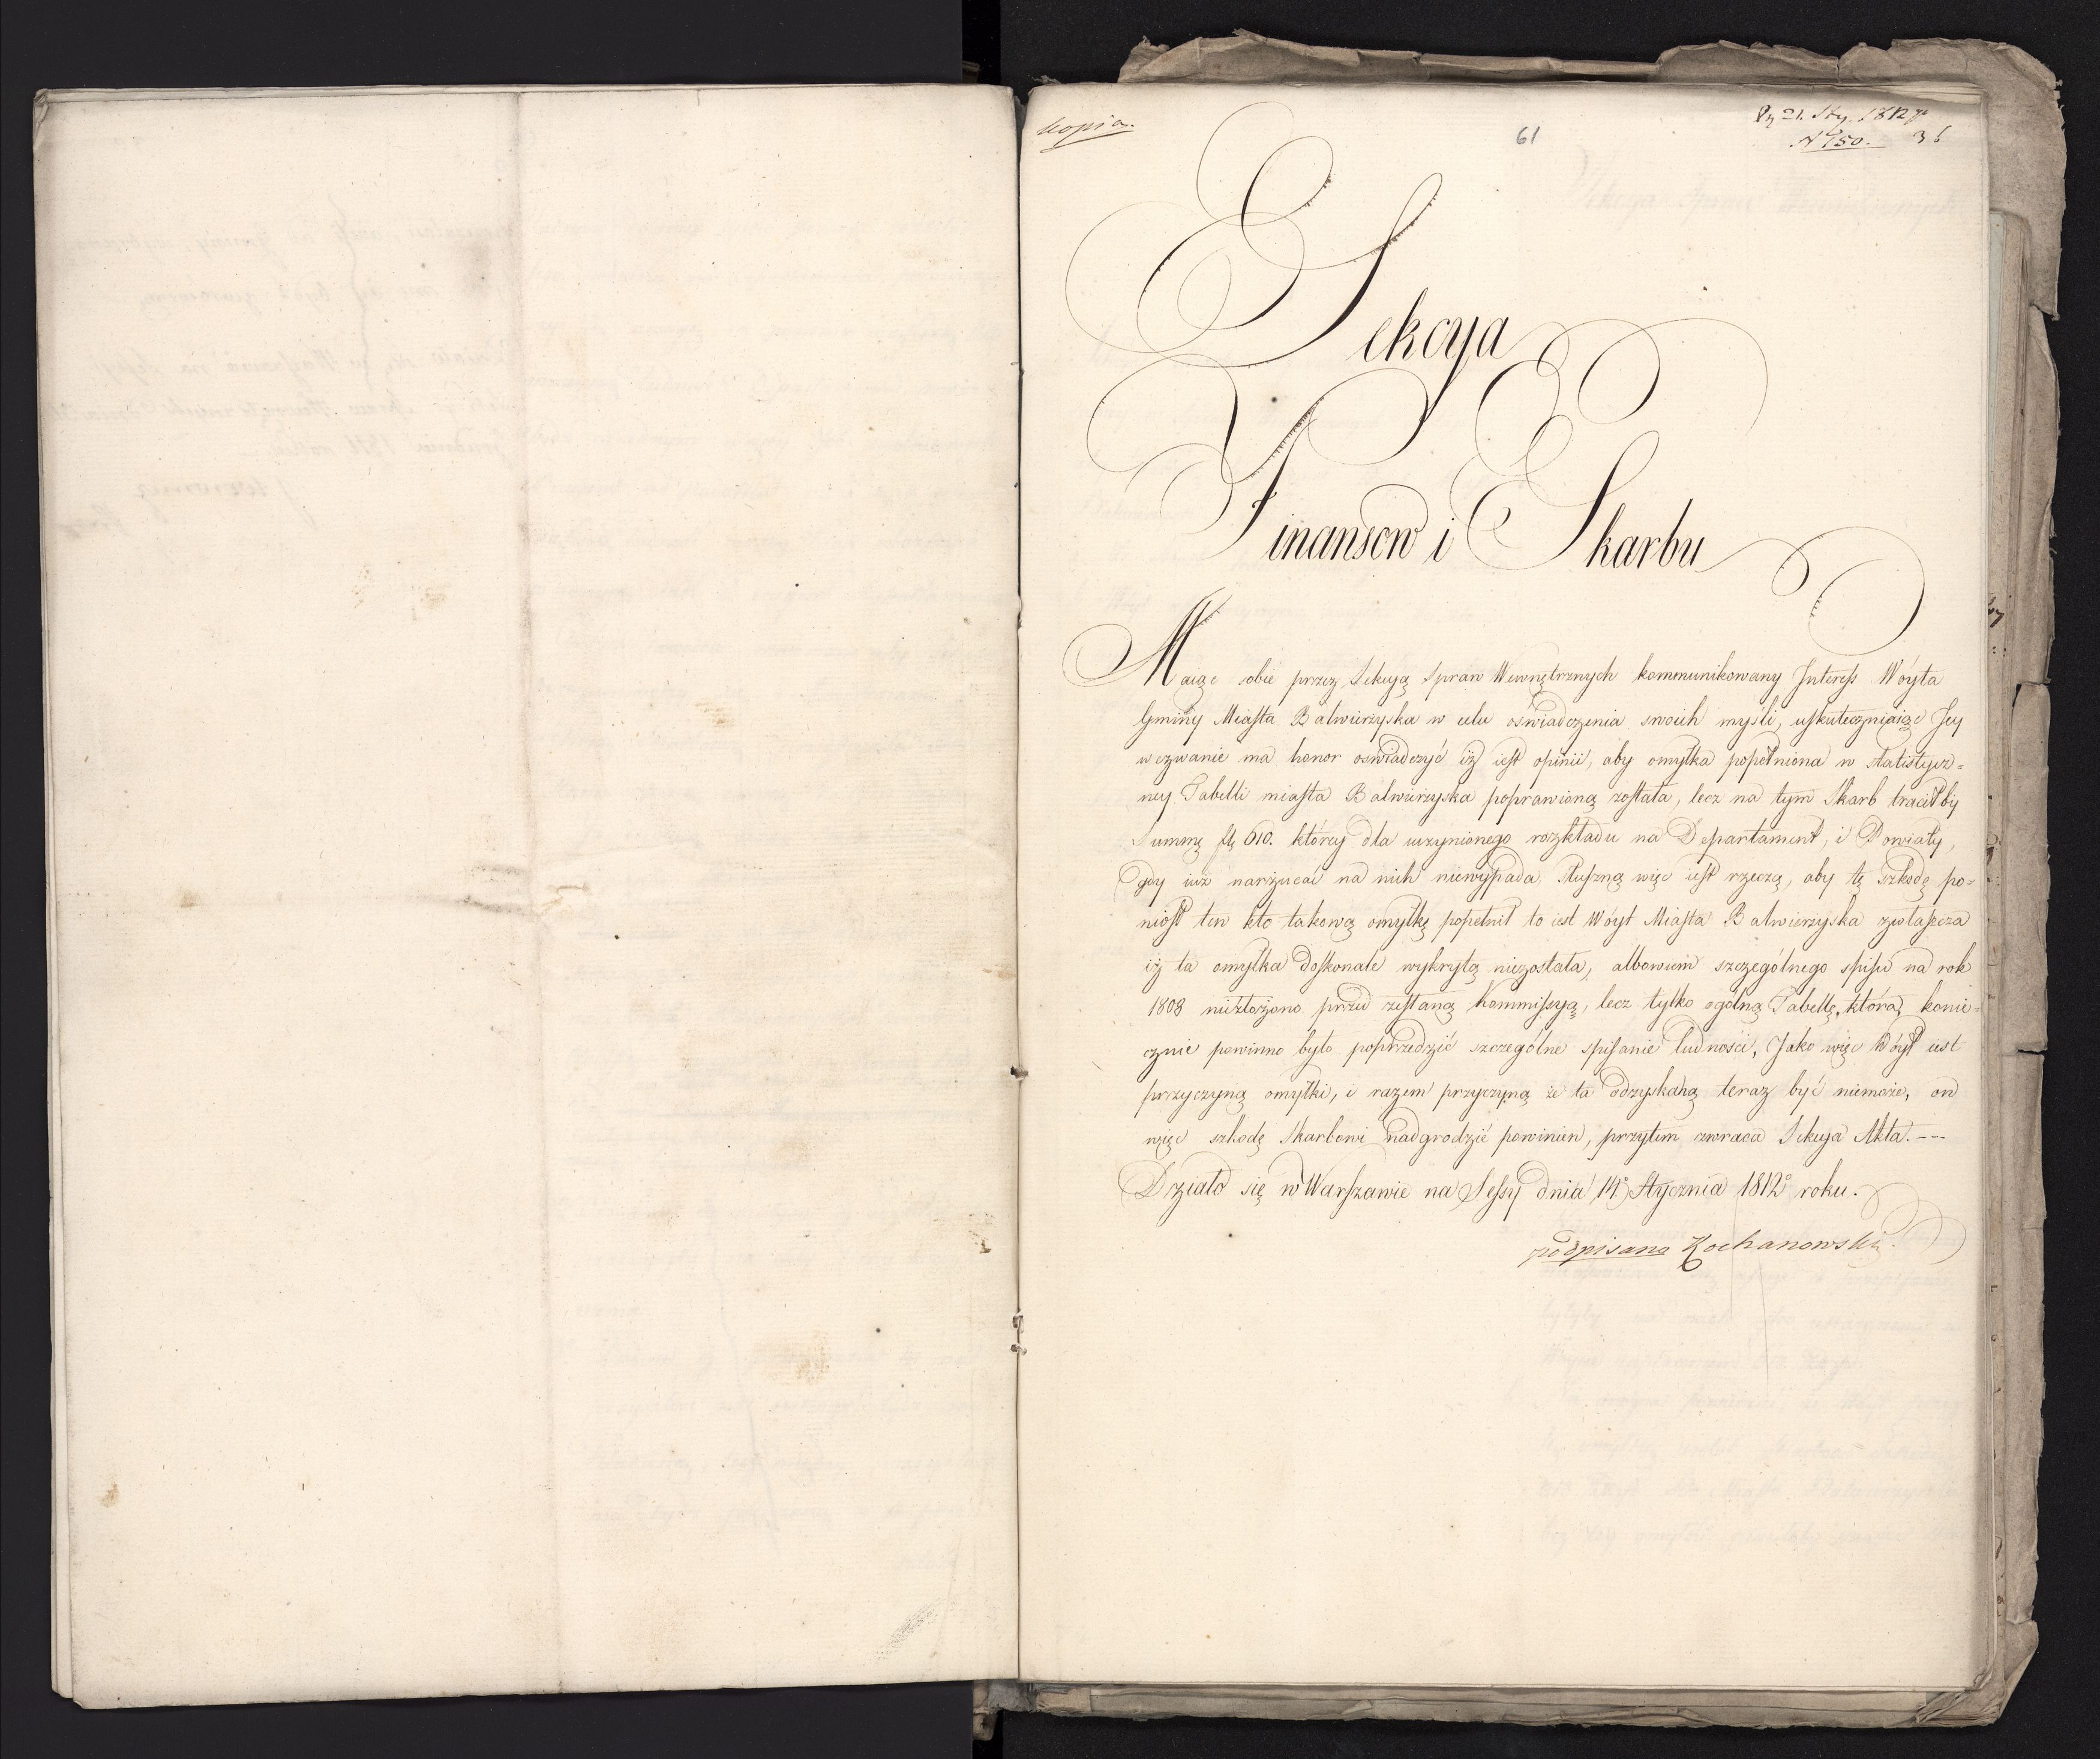 Kopia.
Pr. 21. Sty. 1812 r.
61
N 150. 36
Sekcya
Finansow i Skarbu
Maiąc sobie przez Sekcyą Spraw Wewnętrznych kommunikowany Interess Wóyta
Gminy Miasta Balwierzyska w celu oświadczenia swoich myśli, uskuteczniaiąc Jey
wezwanie ma honor oświadczyć iż iest opinii, aby omyłka popełniona w statistycz=
ney Tabelli miasta Balwierzyska poprawioną została, lecz na tym Skarb traciłby
Summę 610. którey dla uczynionego rozkładu na Departament, i Powiaty,
gdy iuż narzucać na nich niewypada. Słuszną więc iest rzeczą, aby tę szkodę po=
niósł ten kto takową omyłkę popełnił to iest Wóyt Miasta Balwierzyska zwłaszcza
iż ta omyłka doskonale wykrytą niezostała, albowiem szczególnego spisu na rok
1808 niezłożono przed zesłaną Kommissyą, lecz tylko ogólną Tabellę, którą konie=
cznie powinno było poprzedzić szczególne spisanie ludności, Jako więc Wóyt iest
przyczyną omyłki, i razem przyczyną że ta odzyskaną teraz być niemoże, on
więc szkodę Skarbowi nadgrodzić powinien, przytem zwraca Sekcya Akta. ---
Działo się w Warszawie na Sessy dnia 14° Stycznia 1812° roku.
podpisano Kochanowski.